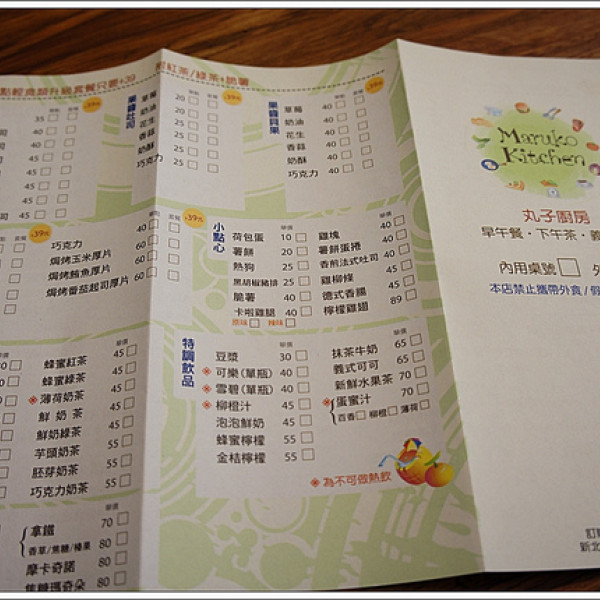 點輕食類升級套餐只要+39
紅茶/綠茶+脆薯
果醬吐司
草莓 20
奶油 20
花生 25
香蒜 25
奶酥 25
巧克力 25
果醬貝果
草莓 40
奶油 40
花生 40
香蒜 40
奶酥 40
巧克力 40
+39元
單價 套餐
巧克力 40
焗烤玉米厚片 60
焗烤鮪魚厚片 60
焗烤番茄起司厚片 60
小點心
單價
荷包蛋 10
薯餅 20
熱狗 25
黑胡椒豬排 25
脆薯 40
卡啦雞腿 40
原味 辣味
單價
雞塊 40
薯餅蛋捲 40
香煎法式吐司 45
雞柳條 45
德式香腸 45
檸檬雞翅 89
單價
蜂蜜紅茶 45
蜂蜜綠茶 45
※薄荷奶茶 45
鮮奶茶 45
鮮奶綠茶 45
芋頭奶茶 55
胚芽奶茶 55
巧克力奶茶 55
單價
拿鐵 70
香草/焦糖/榛果 80
摩卡奇諾 80
焦糖瑪奇朵 80
特調飲品
單價
豆漿 30
※可樂(單瓶) 40
※雪碧(單瓶) 40
※柳橙汁 45
泡泡鮮奶 45
蜂蜜檸檬 55
金桔檸檬 55
單價
抹茶牛奶 65
義式可可 65
新鮮水果茶 70
※蛋蜜汁 70
百香 柳橙 薄荷
※為不可做熱飲
Maruko
Kitchen
丸子廚房
早午餐・下午茶・義
內用桌號
本店禁止攜帶外食/假
新北